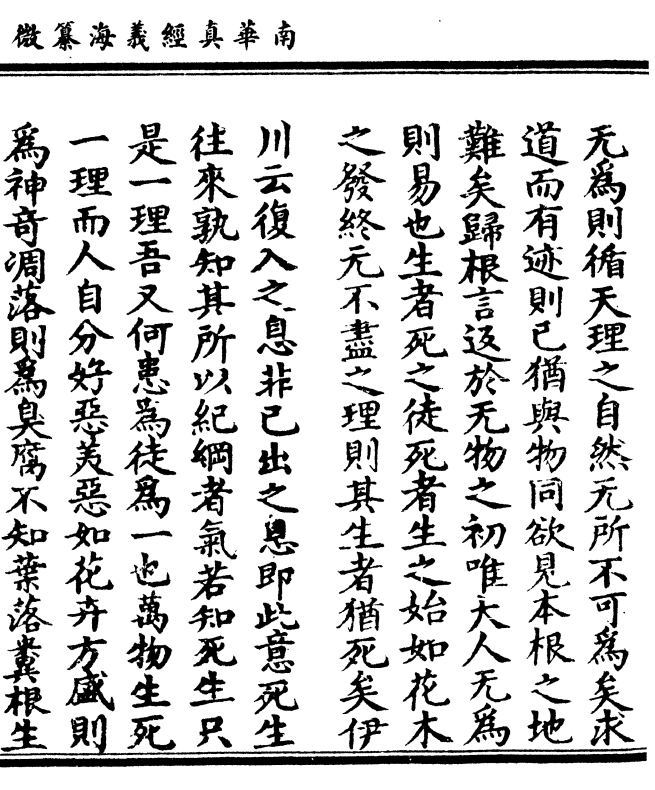 南華真經義海纂微
无爲則循天理之自然无所不可爲矣求
道而有迹則已猶與物同欲見本根之地
難矣歸根言返於无物之初唯大人无爲
則易也生者死之徒死者生之始如花木
之發終元不盡之理則其生者猶死矣伊
川云復入之息非已出之息即此意死生
往來孰知其所以紀綱者氣若知死生只
是一理吾又何患為徒爲一也萬物生死
一理而人自分好惡美惡如花卉方盛則
爲神奇凋落則爲臭腐不知葉落糞根生